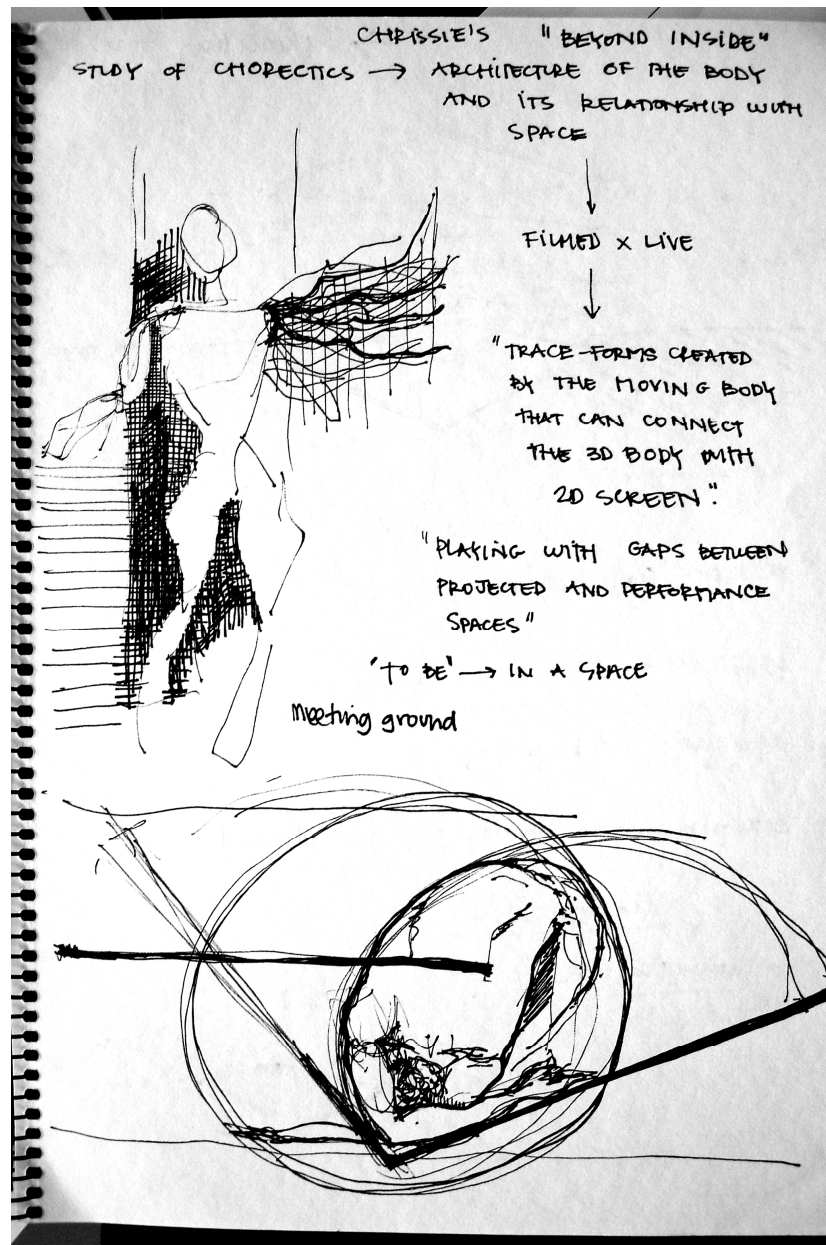 CHRISSIE'S "BEYOND INSIDE"
STUDY OF CHORECTICS → ARCHITECTURE OF THE BODY
AND ITS RELATIONSHIP WITH
SPACE
↓
FILMED x LIVE
↓
"TRACE-FORMS CREATED
BY THE MOVING BODY
THAT CAN CONNECT
THE 3D BODY WITH
2D SCREEN".
"PLAYING WITH GAPS BETWEEN
PROJECTED AND PERFORMANCE
SPACES"
'TO BE' → IN A SPACE
Meeting ground